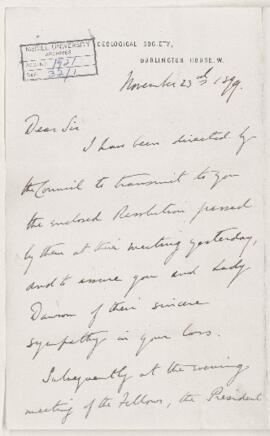 McGILL UNIVERSITY
ARCHIVES
ACC. NO. 1921
REF. 33/1
GEOLOGICAL SOCIETY,
BURLINGTON HOUSE, W.
November 23rd 1899.
Dear Sir
I have been directed by
the Council to transmit to you
the enclosed Resolution passed
by them at their meeting yesterday,
and to assure you and Lady
Dawson of their sincere
sympathy in your loss.
Subsequently at the evening
meeting of the Fellows, the President